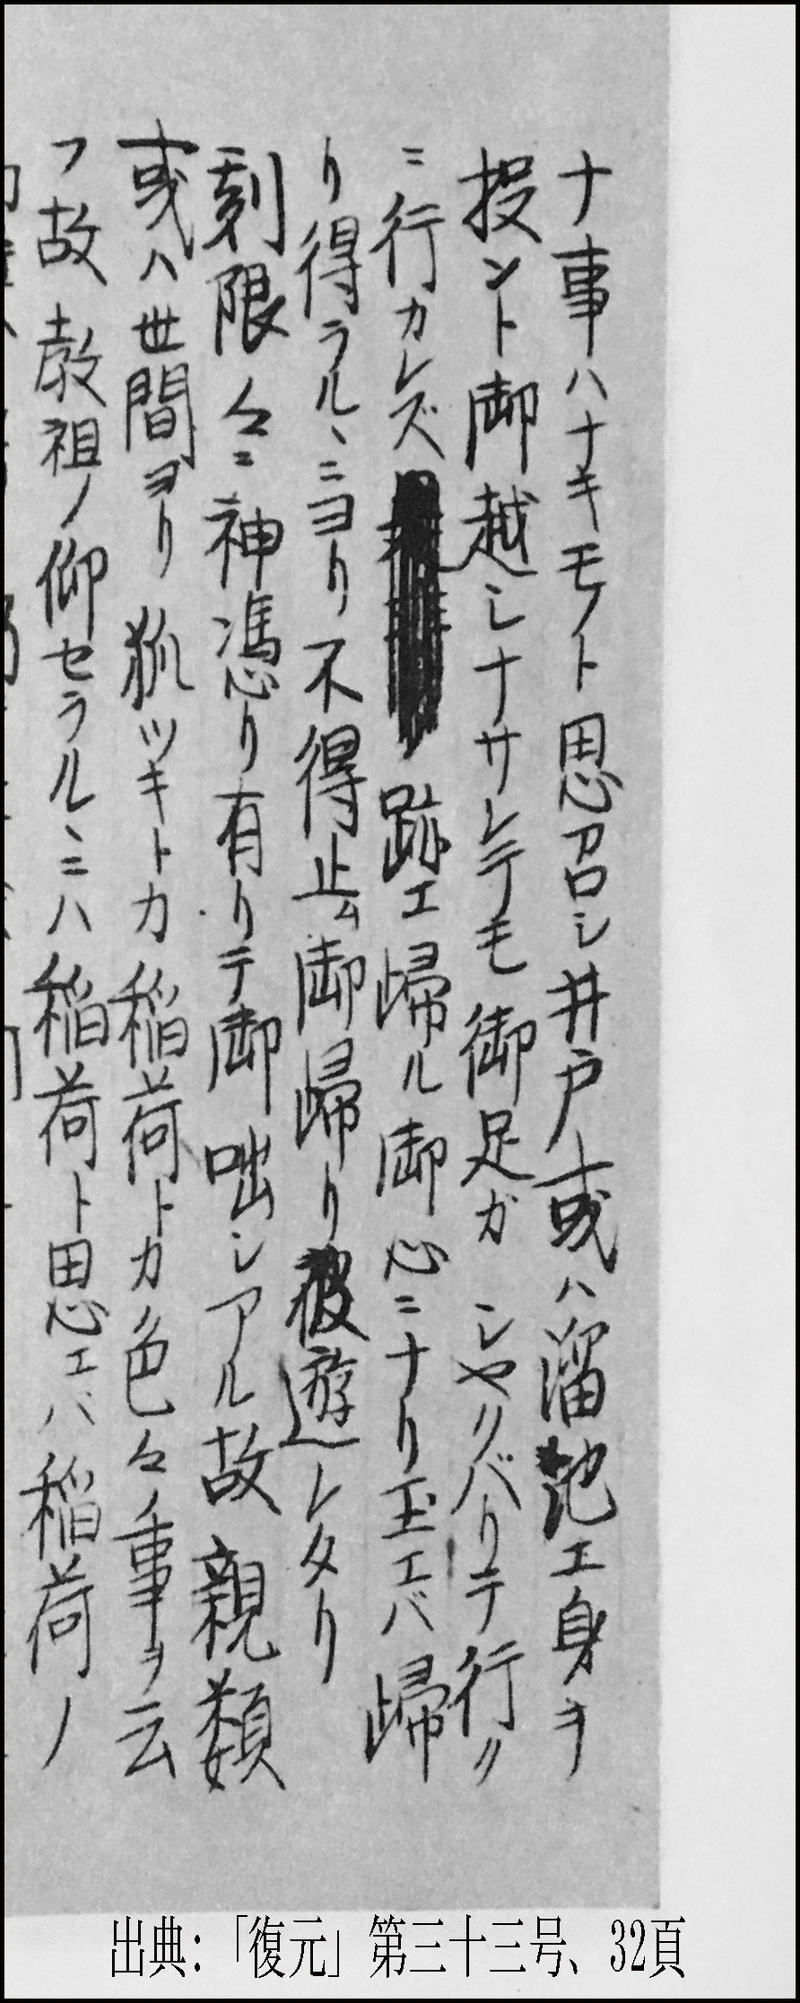 ナ事ハナキモノト思召シ井戸或ハ溜池エ身ヲ
投ント御越シナサレテモ御足ガシヤリバリテ行
ニ行カレズ跡エ帰ル御心ニナリ玉エバ帰
リ得ラルヽニヨリ不得止ム御帰リ被遊レタリ
刻限々ニ神憑リ有リテ御咄シアル故親類
或ハ世間ヨリ狐ツキトカ稲荷トカ色々ノ事ヲ云
フ故教祖ノ仰セラルヽニハ稲荷ト思エバ稲荷ノ
出典:「復元」第三十三号、32頁